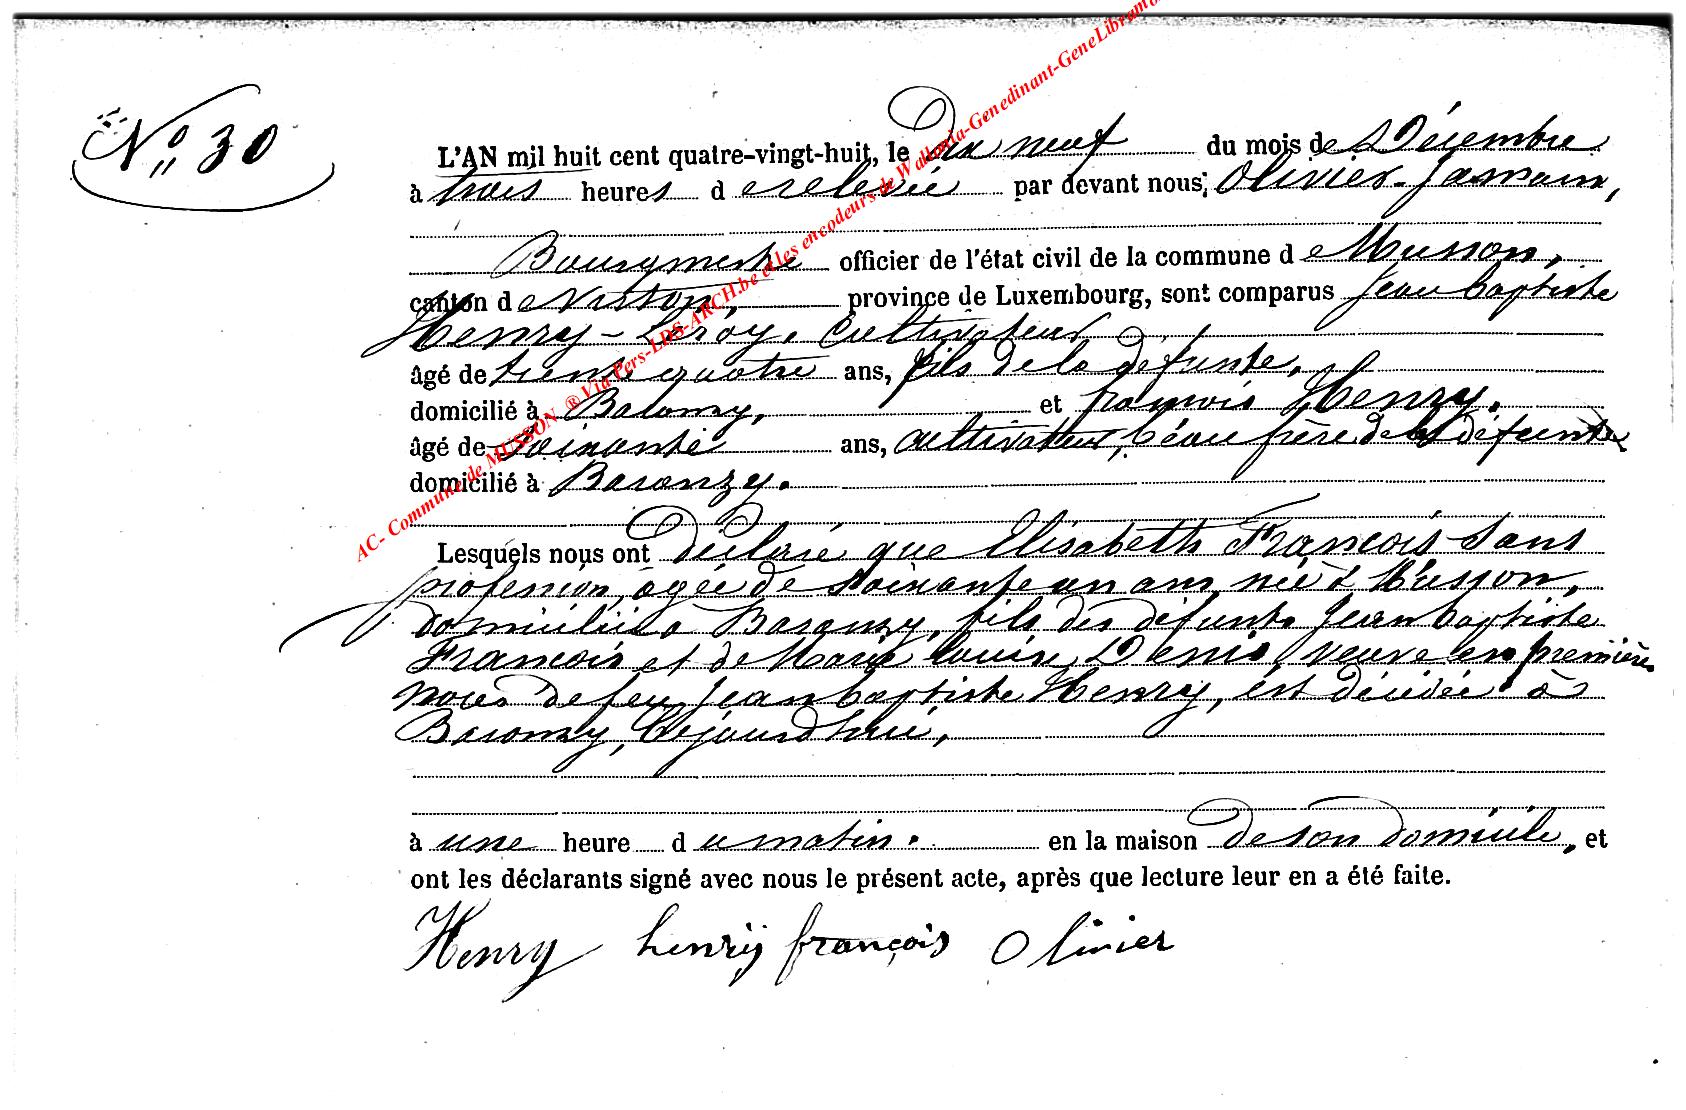 N° 30
L'AN mil huit cent quatre-vingt-huit, le Dix neuf du mois de Décembre
à trois heures de relevée par devant nous, Olivier-Jamain,
Bourgmestre officier de l'état civil de la commune de Musson,
canton de Virton, province de Luxembourg, sont comparus Jean baptiste
Henry-Leroy, Cultivateur
âgé de trente quatre ans, fils de la défunte,
domicilié à Baranzy, et françois Henry,
âgé de Soixante ans, cultivateur, béau frère de la défunte
domicilié à Baranzy.
Lesquels nous ont déclaré que Elisabeth François sans
profession, âgée de soixante un ans, née à Musson,
domiciliée à Baranzy, fille des défunts Jean baptiste
François et de Marie louise Denis, veuve en premières
noces de feu Jean baptiste Henry, est décédée à
Baranzy, Cejourd'hui,
à une heure du matin. en la maison de son domicile, et
ont les déclarants signé avec nous le présent acte, après que lecture leur en a été faite.
Henry henrÿ françois Olivier
AC- Commune de MUSSON ® Via Pers-LDS-ARCH.be et les encodeurs de Wallonia-Genedinant-GeneLibramo